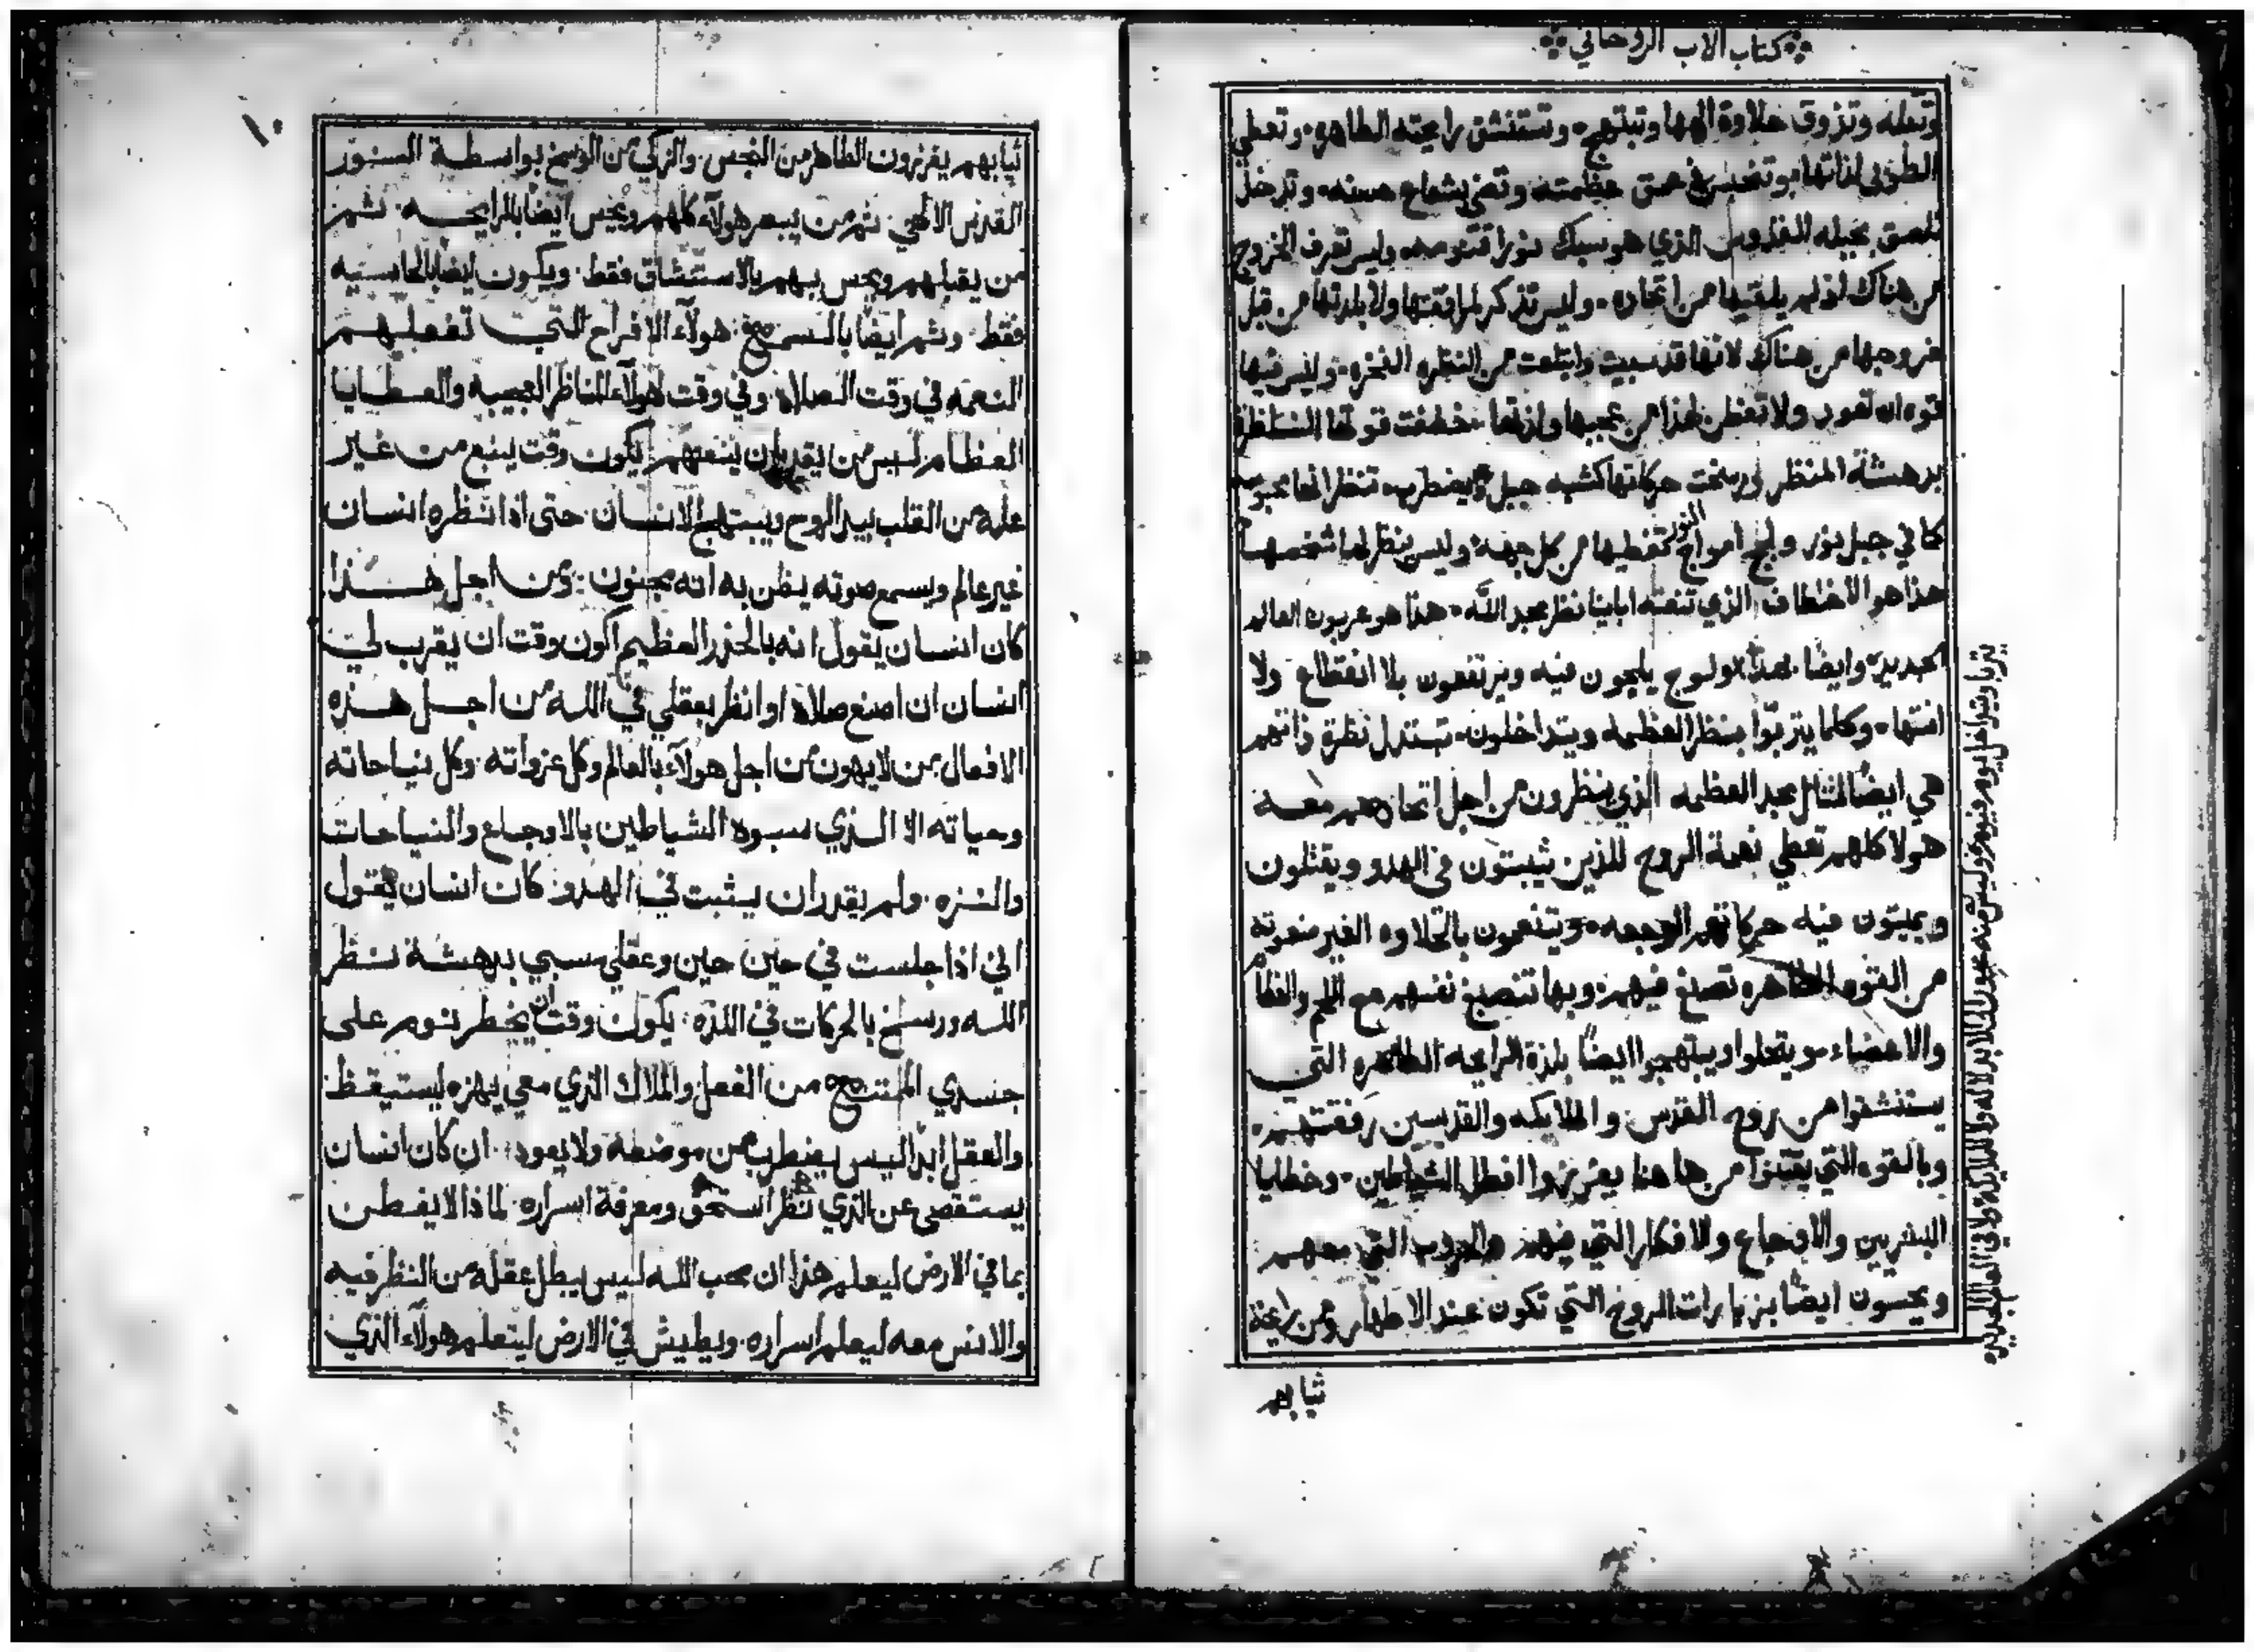 كتاب الاب الروحاني
وتعله وتذوق حلاوة الهها وتبتهج وتستنشق رايحته الطاهره وتعطي
الطوبى لذاتها وتنحبس في عمق عظمته وتضي بشعاع حسنه وتدخل
تلصق بجبله القدوس الذي هو سبك نورا قنومه وليس تعرف الخروج
من هناك اذ لم يلقيها من اتحاده وليس تذكر لمرافقتها ولا بلدتها من قبل
خروجها من هناك لانها قد سبيت وابتلعت من النظره الفخره وليس فيها
قوه ان تعود ولا تفطن لهذا من عجبها ولذتها خطفت قوتها الناظرة
بدهشة المنظر ورسخت حركاتها كشبه جبل يضطرب تنظر انها محبوسه
كما في جبل نور ولج امواج النور تغطيها من كل جهه وليس ينظر لها شخصها
هذا هو الاختطاف الذي تنعته ابايتنا نظر مجد الله هذا هو عربون العالم
الجديد وايضا بهذا الولوج يلجون فيه ويرتفعون بلا انقطاع ولا
انتها وكلما يتربوا بنظر العظمه ويتداخلون تستدل نظرة ذاتهم
هي ايضا لمثال مجد العظمه الذي ينظرون من اجل اتحادهم معه
هولا كلهم تعطي نعمة الروح للذين ثيبتون في الهدو ويقتلون
ويميتون فيه حركاتهم الوجعه ويتنعمون بالحلاوه الغير منعوته
من القوه الطاهره تصبغ فيهم وبها تنصبغ نفسهم مع اللحم والعظام
والاعضاء ويتحلوا ويبتهجوا ايضا بلذة الرايحه الطاهره التي
يستنشقوا من روح القدس والملايكه والقديسين رفقتهم
وبالقوه التي يقتنوا من ها هنا يفرزوا افطل الشياطين وخطايا
البشريين والاوجاع والافكار التي فيهم والحروب التي معهم
ويحسون ايضا بزيارات الروح التي تكون عند الاطهار ومن رايحة
ثيابهم
ثيابهم يفرزون الطاهر من النجس والزكي من الوسخ بواسطة النور
القدس الالهي ثم من يبصر هولاء كلهم ويحس ايضا بالرايحه ثم
من يقبلهم ويحس بهم بالاستنشاق فقط ويكون ايضا بالحاسيه
فقط وثم ايضا بالسمع هولاء الافراح التي تفعلهم
النعمه في وقت الصلاه وفي وقت هولاء المناظر العجيبه والعطايا
العظام ليس من يقدر ان ينعتهم يكون وقت ينبع من غير
علة من القلب بيد الروح ويبتهج الانسان حتى اذا انظره انسان
غير عالم ويسمع صوته يظن به انه مجنون ومن اجل هذا
كان انسان يقول انه بالحذر العظيم اكون وقت ان يقرب لي
انسان ان اصنع صلاة او انظر بعقلي في الله من اجل هذه
الافعال من لا يهون من اجل هولاء بالعالم وكل عزواته وكل نياحاته
وحياته الا الذي سبوه الشياطين بالاوجاع والنياحات
والنزه ولم يقدر ان يثبت في الهدو كان انسان يقول
اني اذا جلست في حين حين وعقلي سبي بدهشة نظر
الله ورسخ بالحركات في اللذه يكون وقت ان يخطر نوم على
جسدي الممتنع من الفعل والملاك الذي معي يهزه ليستيقظ
والعقل ابدا ليس يضطرب من موضعه ولا يعود ان كان انسان
يستقصي عن الذي نظر استحق ومعرفة اسراره لماذا لا يفطن
بما في الارض ليعلم هذا ان محب الله ليس يبطل عقله من النظر فيه
والانس معه ليعلم اسراره ويطيش في الارض ليتعلم هولاء الذي